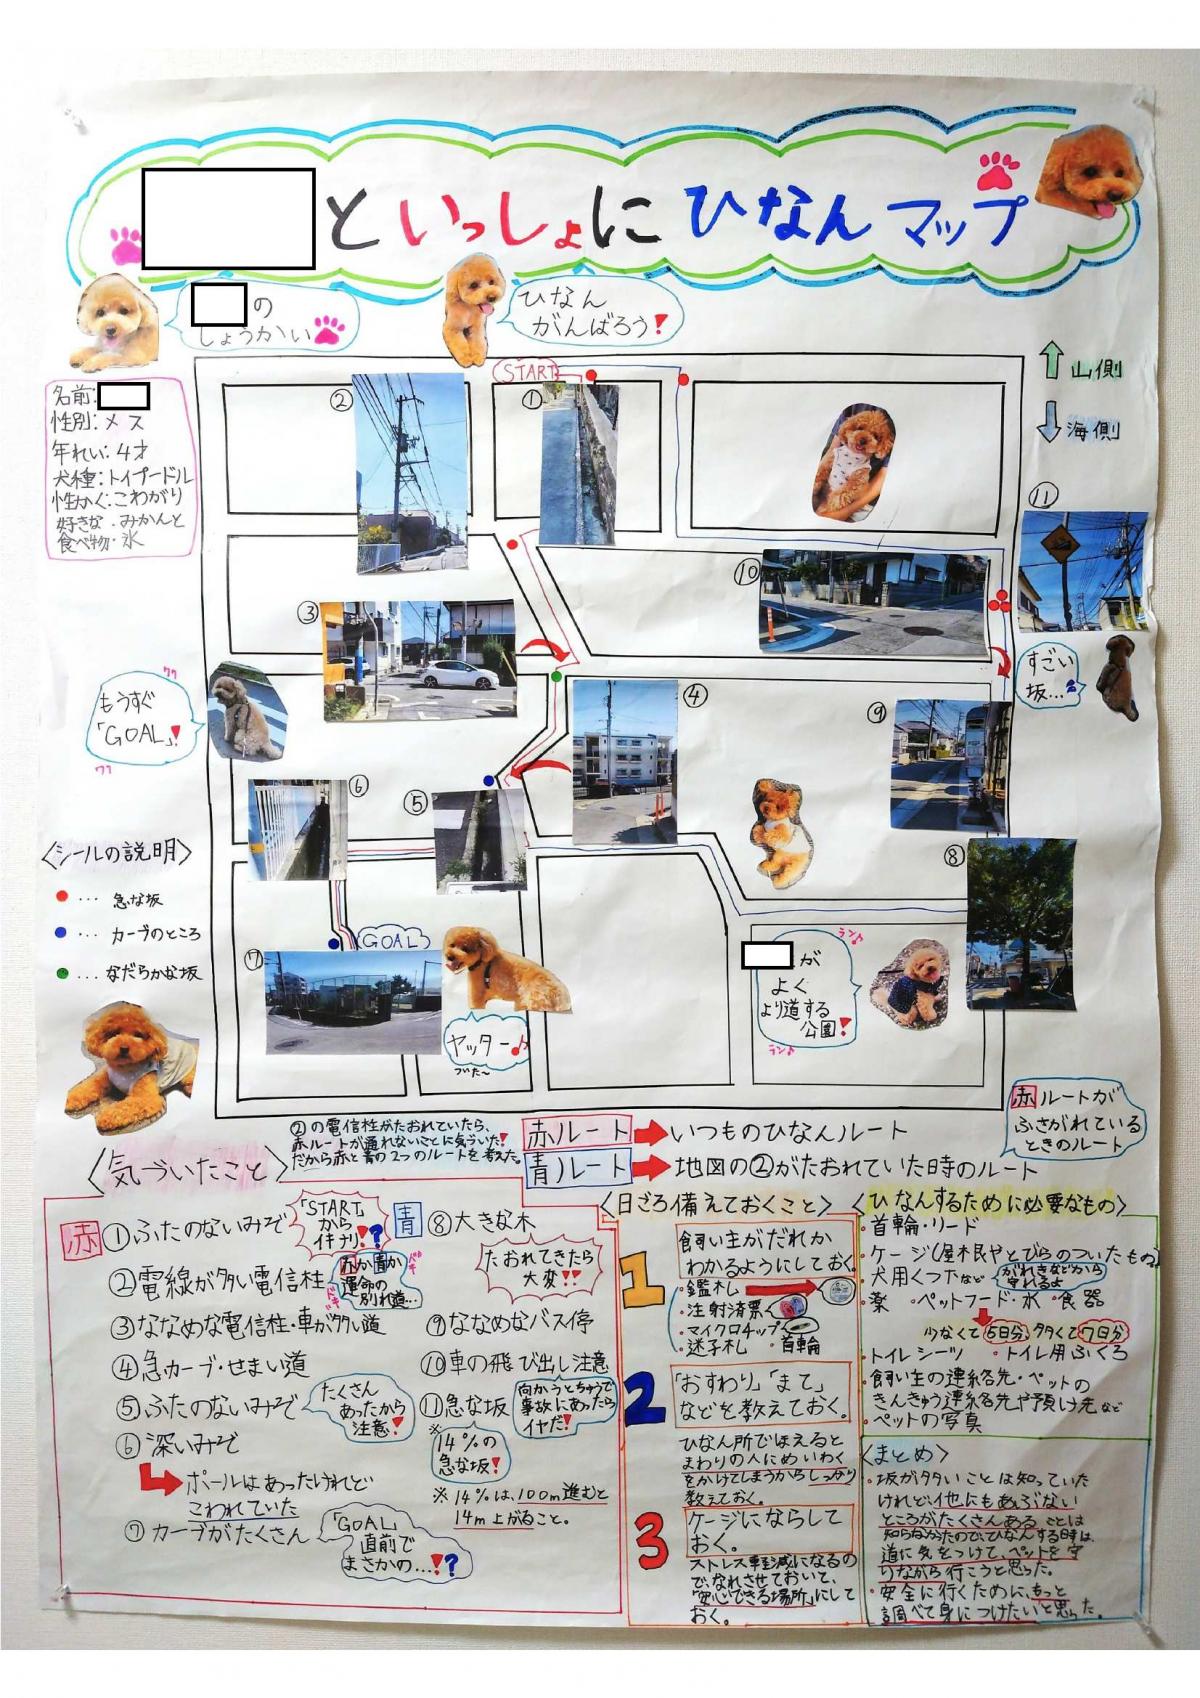 といっしょにひなんマップ
の
しょうかい
ひなん
がんばろう!
名前:
性別:メス
年れい:4才
犬種:トイプードル
性かく:こわがり
好きな・みかんと
食べ物・氷
START
①
②
③
④
⑤
⑥
⑦
⑧
⑨
⑩
⑪
山側
海側
すごい
坂…
ワワ
もうすぐ
「GOAL」!
ワワ
〈シールの説明〉
…急な坂
…カーブのところ
…なだらかな坂
GOAL
ヤッター♪
ついた~
ラン♪
が
よく
より道する
公園!
ラン♪
②の電信柱がたおれていたら、
赤ルートが通れないことに気づいた!
だから赤と青の2つのルートを考えた。
赤ルート→いつものひなんルート
青ルート→地図の②がたおれていた時のルート
赤ルートが
ふさがれている
ときのルート
〈気づいたこと〉
赤
①ふたのないみぞ
「START」
から
イキナリ!?
②電線が多い電信柱
赤か青か
運命の
別れ道…
ドキ
ドキ
③ななめな電信柱・車が多い道
④急カーブ・せまい道
⑤ふたのないみぞ
たくさん
あったから
注意!
⑥深いみぞ
ポールはあったけれど
こわれていた
⑦カーブがたくさん
「GOAL」
直前で
まさかの…!?
青
⑧大きな木
たおれてきたら
大変!!
⑨ななめなバス停
⑩車の飛び出し注意
向かうとちゅうで
事故にあったら
イヤだ!
⑪急な坂
※
14%の
急な坂!
※14%は、100m進むと
14m上がること。
〈日ごろ備えておくこと〉
1
飼い主がだれか
わかるようにしておく。
・鑑札
・注射済票
・マイクロチップ
・迷子札 ・首輪
2
「おすわり」「まて」
などを教えておく。
ひなん所でほえると
まわりの人にめいわく
をかけてしまうからしっかり
教えておく。
3
ケージにならして
おく。
ストレス軽減になるの
で、なれさせておいて、
「安心できる場所」にして
おく。
〈ひなんするために必要なもの〉
・首輪・リード
・ケージ(屋根やとびらのついたもの)
・犬用くつ下など
がれきなどから
守れるよ
・薬 ・ペットフード・水 ・食器
少なくて5日分、多くて7日分
・トイレシーツ ・トイレ用ふくろ
・飼い主の連絡先・ペットの
きんきゅう連絡先や預け先など
・ペットの写真
〈まとめ〉
・坂が多いことは知っていた
けれど、他にもあぶない
ところがたくさんあることは
知らなかったので、ひなんする時は、
道に気をつけて、ペットを守
りながら行こうと思った。
・安全に行くために、もっと
調べて身につけたいと思った。